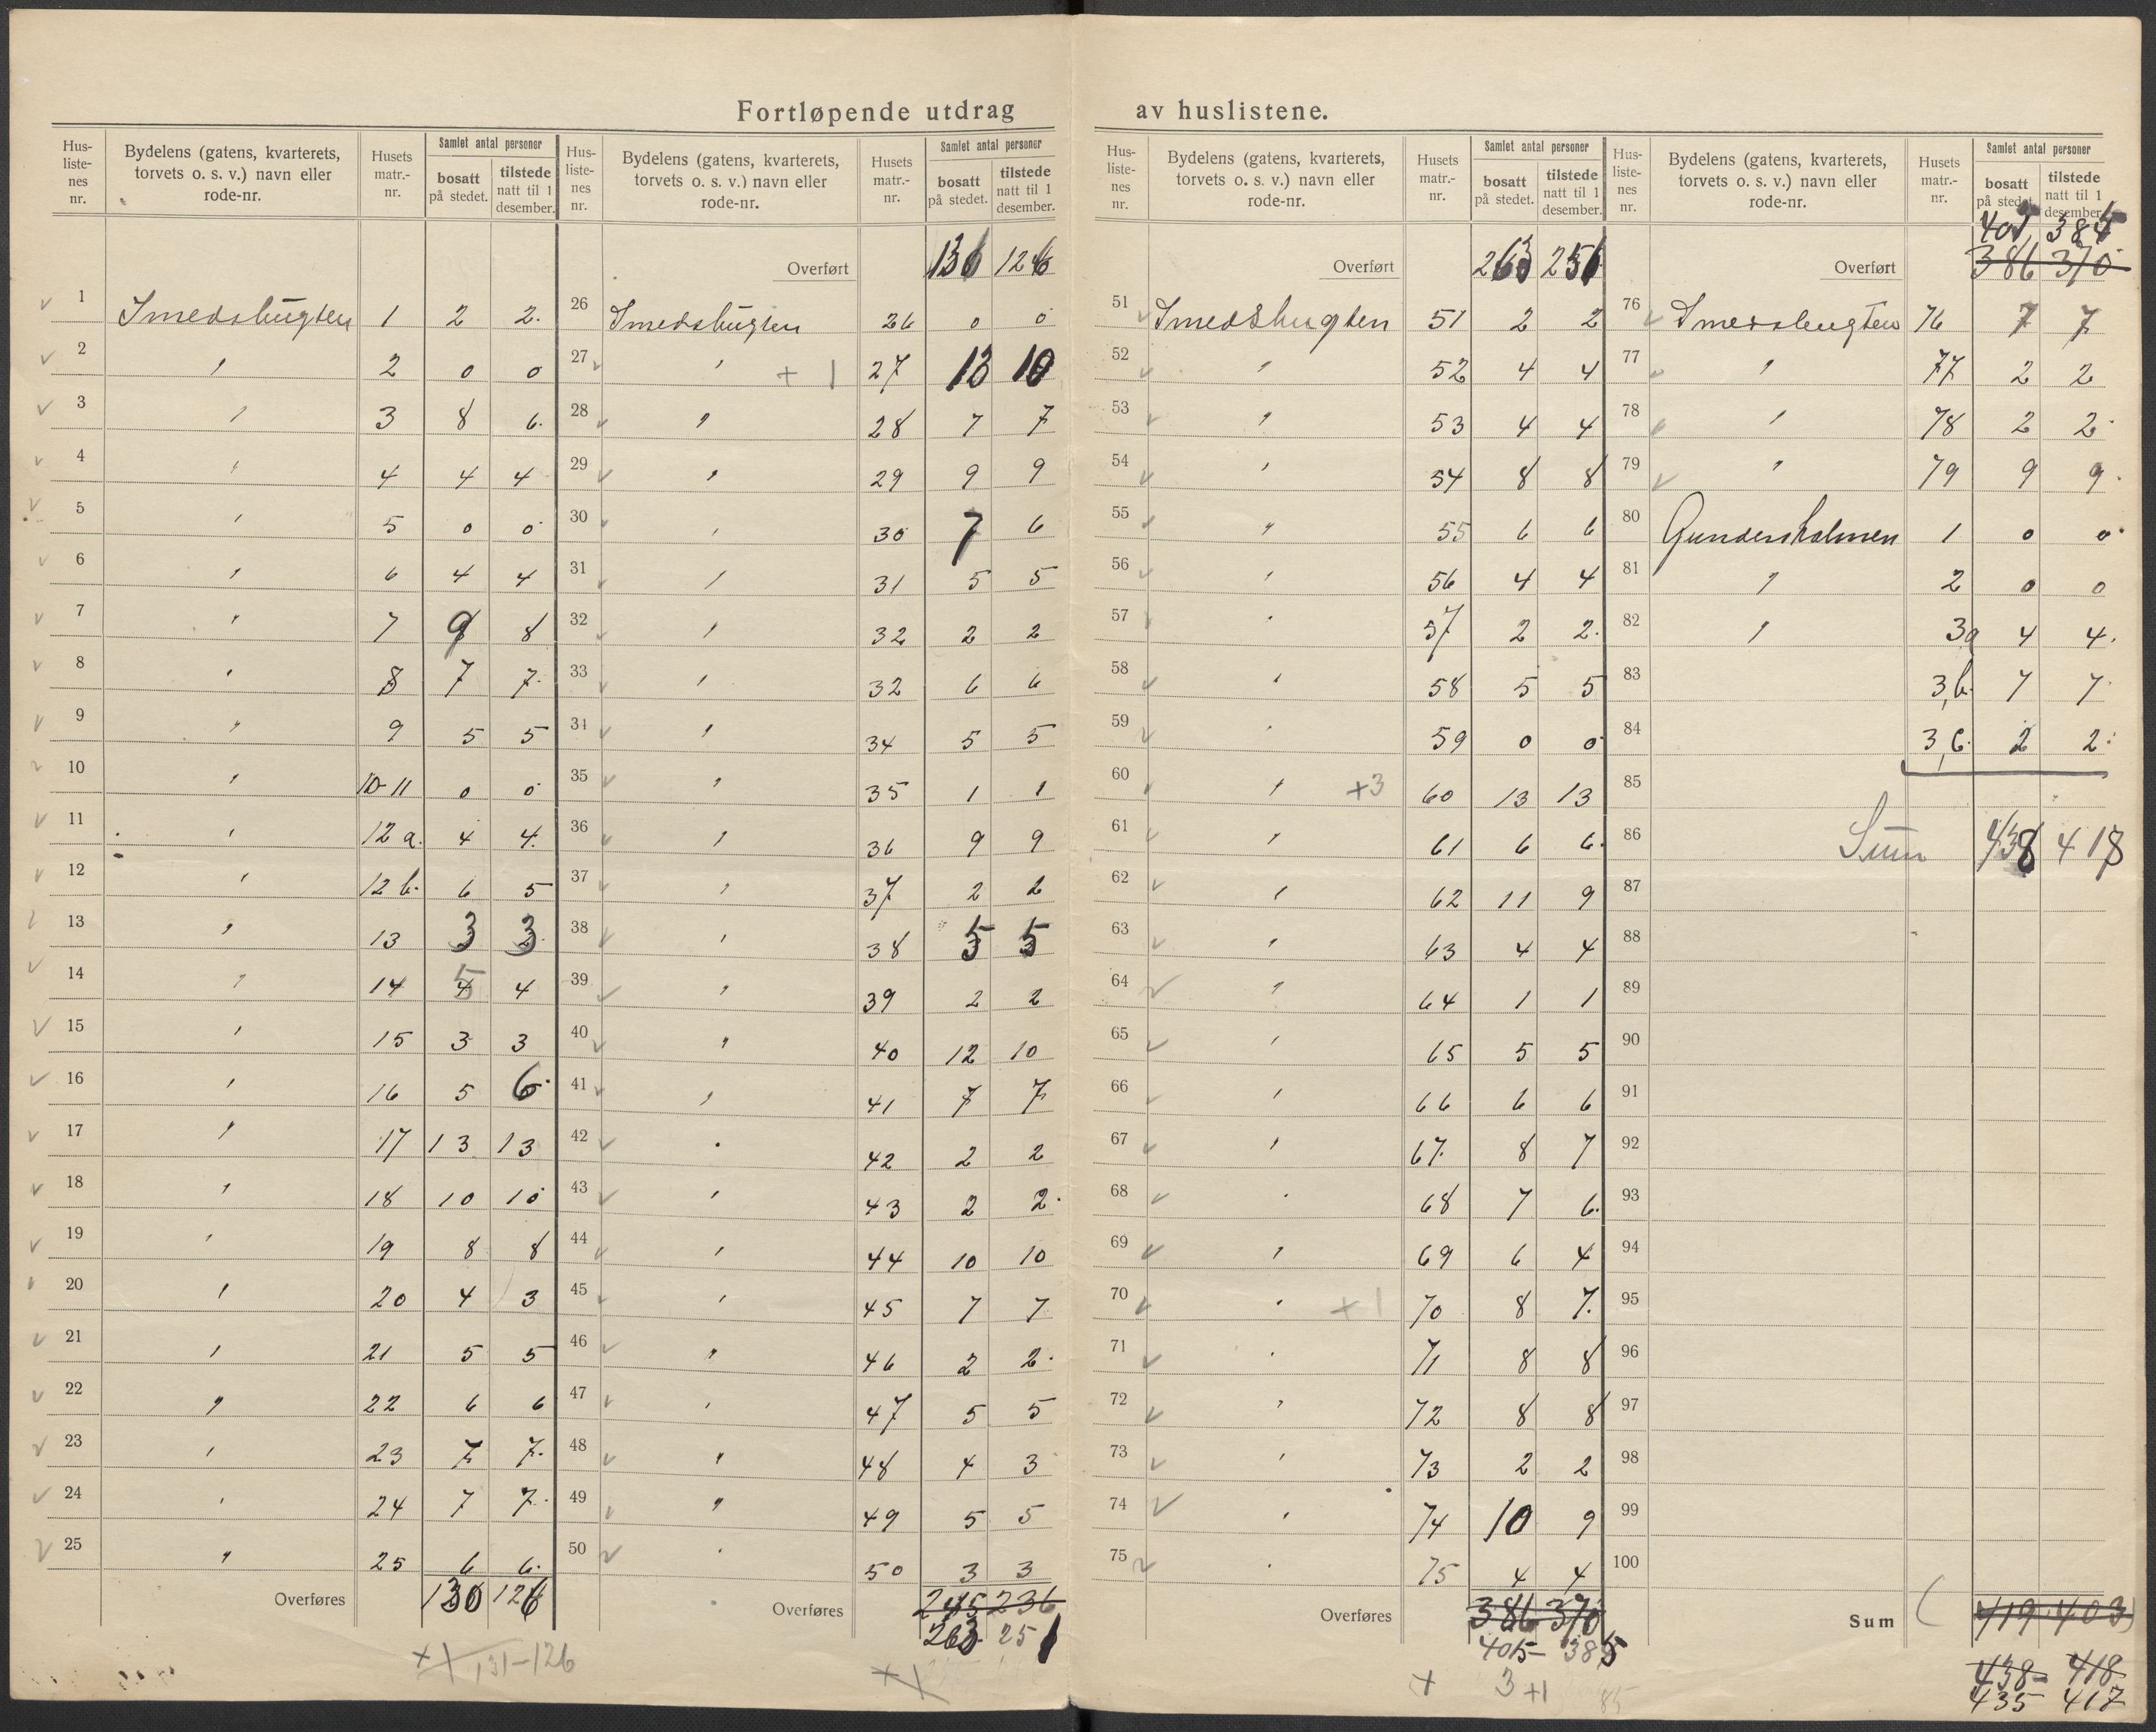 Fortløpende utdrag av huslistene.
Hus-listenes nr. | Bydelens (gatens, kvarterets, torvets o. s. v.) navn eller rode-nr. | Husets matr.-nr. | Samlet antal personer bosatt på stedet. | tilstede natt til 1 desember.
1 Smedsbugten 1 2 2.
2 " 2 0 0
3 " 3 8 6.
4 " 4 4 4
5 " 5 0 0
6 " 6 4 4
7 " 7 9 8
8 " 8 7 7.
9 " 9 5 5
10 " 10-11 0 0
11 " 12 a. 4 4.
12 " 12 b. 6 5
13 " 13 3 3
14 " 14 5 4
15 " 15 3 3
16 " 16 5 6.
17 " 17 13 13
18 " 18 10 10
19 " 19 8 8
20 " 20 4 3
21 " 21 5 5
22 " 22 6 6
23 " 23 7 7.
24 " 24 7 7.
25 " 25 6 6.
Overføres 130 126
+ 1 131-126
Hus-listenes nr. | Bydelens (gatens, kvarterets, torvets o. s. v.) navn eller rode-nr. | Husets matr.-nr. | Samlet antal personer bosatt på stedet. | tilstede natt til 1 desember.
Overført 126
26 Smedsbugten 26 0 0
27 " + 1 27 13 10
28 " 28 7 7
29 " 29 9 9
30 " 30 7 6
31 " 31 5 5
32 " 32 2 2
33 " 32 6 6
34 " 34 5 5
35 " 35 1 1
36 " 36 9 9
37 " 37 2 2
38 " 38 5 5
39 " 39 2 2
40 " 40 12 10
41 " 41 7 7
42 " 42 2 2
43 " 43 2 2.
44 " 44 10 10
45 " 45 7 7
46 " 46 2 2.
47 " 47 5 5
48 " 48 4 3
49 " 49 5 5
50 " 50 3 3
Overføres 245 236
263 251
+ 1
Hus-listenes nr. | Bydelens (gatens, kvarterets, torvets o. s. v.) navn eller rode-nr. | Husets matr.-nr. | Samlet antal personer bosatt på stedet. | tilstede natt til 1 desember.
Overført 263 251
51 Smedsbugten 51 2 2
52 " 52 4 4
53 " 53 4 4
54 " 54 8 8
55 " 55 6 6
56 " 56 4 4
57 " 57 2 2.
58 " 58 5 5
59 " 59 0 0
60 " +3 60 13 13
61 " 61 6 6.
62 " 62 11 9
63 " 63 4 4
64 " 64 1 1
65 " 65 5 5
66 " 66 6 6
67 " 67. 8 7
68 " 68 7 6.
69 " 69 6 4
70 " + 1 70 8 7.
71 " 71 8 8
72 " 72 8 8
73 " 73 2 2
74 " 74 10 9
75 " 75 4 4
Overføres 386 370
405- 385
+ 3 +1 85
Hus-listenes nr. | Bydelens (gatens, kvarterets, torvets o. s. v.) navn eller rode-nr. | Husets matr.-nr. | Samlet antal personer bosatt på stedet. | tilstede natt til 1 desember.
Overført 386 370
76 Smedsbugten 76 7 7
77 " 77 2 2
78 " 78 2 2.
79 " 79 9 9.
80 Gundersholmen 1 0 0
81 " 2 0 0
82 " 3a 4 4.
83 3,b. 7 7.
84 3,c. 2 2.
85
86 Sum 438 418
87
88
89
90
91
92
93
94
95
96
97
98
99
100
Sum 419 403
438- 418
435 417